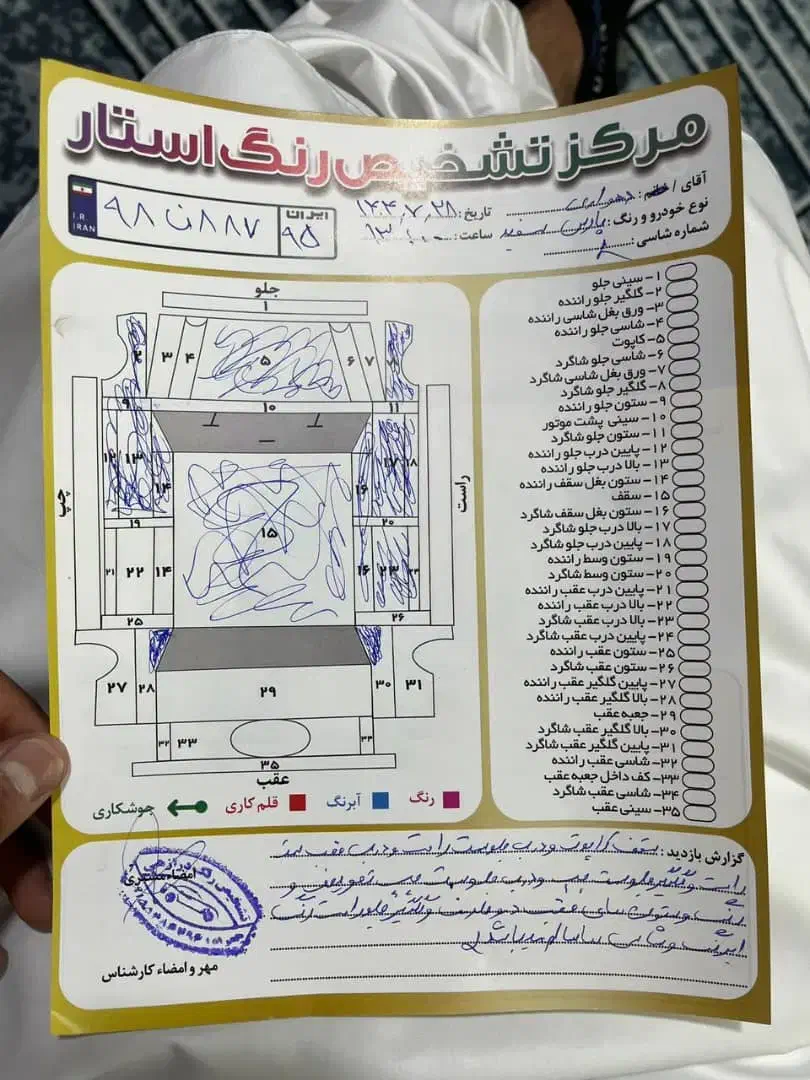 مرکز تشخیص رنگ استار
آقای / خانم:
نوع خودرو و رنگ: پارس سفید
شماره شاسی:
تاریخ: ۱۴۰۴٫۷٫۲۸
ساعت: ۱۳:۰۰
I.R. IRAN
۹۸ ن ۸۸۷
ایران
۹۵
جلو
۱
۲ ۳ ۴ ۵ ۶ ۷
۹ ۱۰ ۱۱
۱۲ ۱۳ ۱۴ ۱۵ ۱۶ ۱۷ ۱۸
چپ
راست
۱۹ ۲۰
۲۱ ۲۲ ۱۴ ۱۶ ۲۳ ۲۴
۲۵ ۲۶
۲۷ ۲۸ ۲۹ ۳۰ ۳۱
۳۲ ۳۳ ۳۴
۳۵
عقب
رنگ
آبرنگ
قلم کاری
جوشکاری
۱- سینی جلو
۲- گلگیر جلو راننده
۳- ورق بغل شاسی راننده
۴- شاسی جلو راننده
۵- کاپوت
۶- شاسی جلو شاگرد
۷- ورق بغل شاسی شاگرد
۸- گلگیر جلو شاگرد
۹- ستون جلو راننده
۱۰- سینی پشت موتور
۱۱- ستون جلو شاگرد
۱۲- پایین درب جلو راننده
۱۳- بالا درب جلو راننده
۱۴- ستون بغل سقف راننده
۱۵- سقف
۱۶- ستون بغل سقف شاگرد
۱۷- بالا درب جلو شاگرد
۱۸- پایین درب جلو شاگرد
۱۹- ستون وسط راننده
۲۰- ستون وسط شاگرد
۲۱- پایین درب عقب راننده
۲۲- بالا درب عقب راننده
۲۳- بالا درب عقب شاگرد
۲۴- پایین درب عقب شاگرد
۲۵- ستون عقب راننده
۲۶- ستون عقب شاگرد
۲۷- پایین گلگیر عقب راننده
۲۸- بالا گلگیر عقب راننده
۲۹- جعبه عقب
۳۰- بالا گلگیر عقب شاگرد
۳۱- پایین گلگیر عقب شاگرد
۳۲- شاسی عقب راننده
۳۳- کف داخل جعبه عقب
۳۴- شاسی عقب شاگرد
۳۵- سینی عقب
گزارش بازدید: سقف کاپوت و درب جلو سمت راست و درب عقب سمت
راست و گلگیر جلو سمت چپ و درب جلو سمت چپ تعویض و
رنگ و ستون های عقب دو طرف و گلگیر جلو راست رنگ
میباشد
امضاء مشتری
مهر و امضاء کارشناس